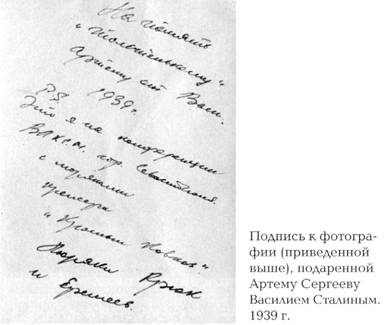 На память
"Толстенькому"
Артему от Васи.
1939 г.
P.S.
Это я на конференции
гор. Севастополя.
с моряками
крейсера
"Красный Кавказ"
Моряки
и
Подпись к фотогра-
фии (приведенной
выше), подаренной
Артему Сергееву
Василием Сталиным.
1939 г.